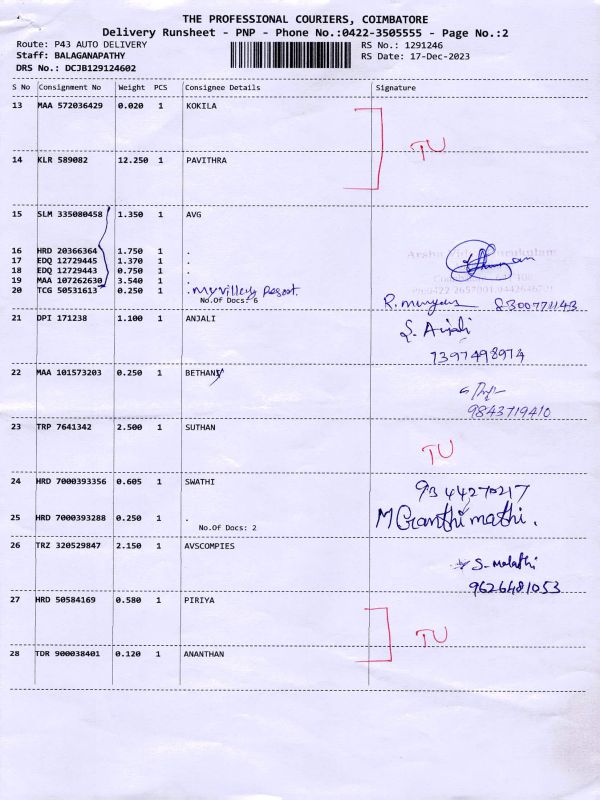 THE PROFESSIONAL COURIERS, COIMBATORE
Delivery Runsheet - PNP - Phone No.:0422-3505555 - Page No.:2
Route: P43 AUTO DELIVERY RS No.: 1291246
Staff: BALAGANAPATHY RS Date: 17-Dec-2023
DRS No.: DCJB129124602
S No Consignment No Weight PCS Consignee Details Signature
13 MAA 572036429 0.020 1 KOKILA
TU
14 KLR 589082 12.250 1 PAVITHRA
15 SLM 335080458 1.350 1 AVG
16 HRD 20366364 1.750 1 .
17 EDQ 12729445 1.370 1 .
18 EDQ 12729443 0.750 1 .
19 MAA 107262630 3.540 1 .
20 TCG 50531613 0.250 1 . My village Resort.
No.Of Docs: 6
R. murugan 8300771143
21 DPI 171238 1.100 1 ANJALI
S. Anjali
7397498974
22 MAA 101573203 0.250 1 BETHANY
9843719410
23 TRP 7641342 2.500 1 SUTHAN
TU
24 HRD 7000393356 0.605 1 SWATHI
9344270217
25 HRD 7000393288 0.250 1 .
No.Of Docs: 2
M Granthimathi.
26 TRZ 320529847 2.150 1 AVSCOMPIES
S. Malathi
9626481053
27 HRD 50584169 0.580 1 PIRIYA
TU
28 TDR 900038401 0.120 1 ANANTHAN